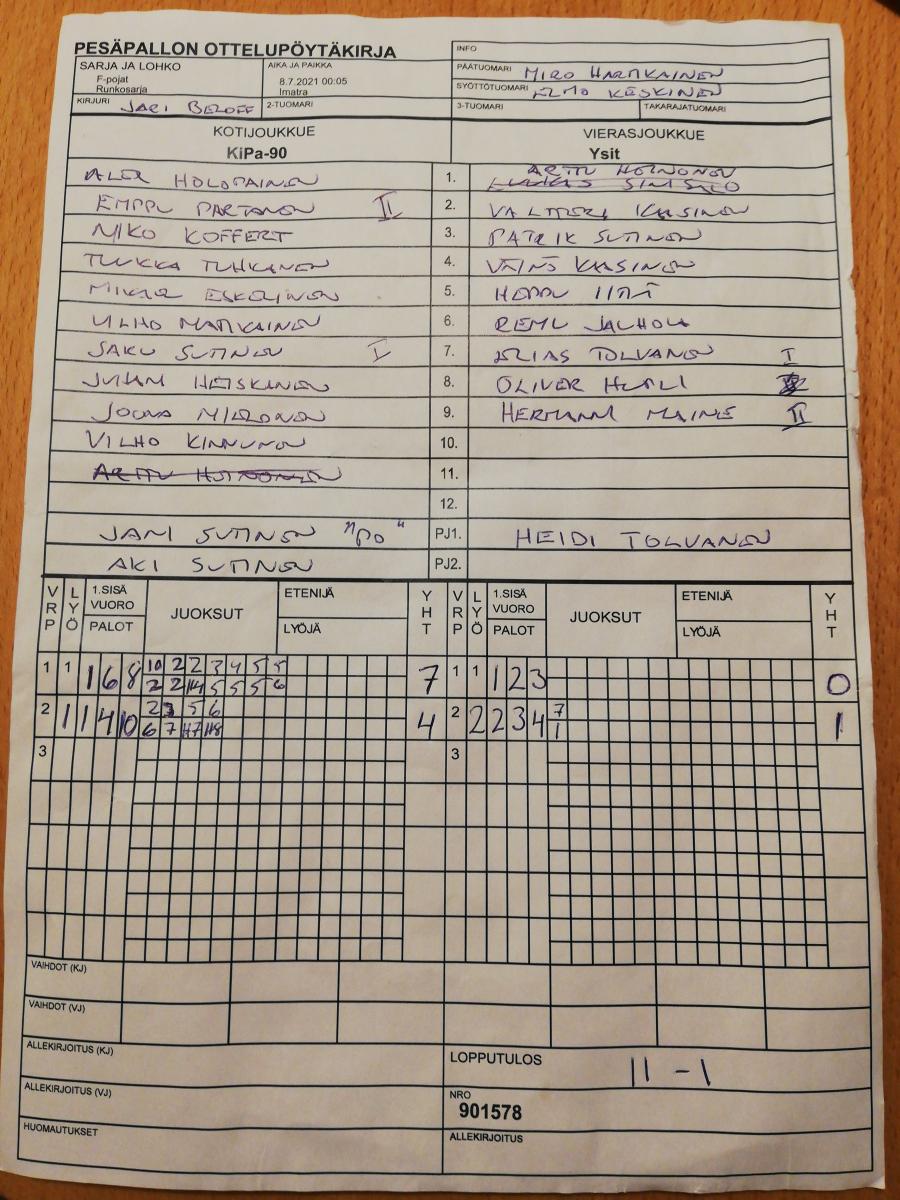 PESÄPALLON OTTELUPÖYTÄKIRJA
INFO
SARJA JA LOHKO
F-pojat
Runkosarja
AIKA JA PAIKKA
8.7.2021 00:05
Imatra
PÄÄTUOMARI MIRO HARTIKAINEN
SYÖTTÖTUOMARI ELMO KESKINEN
KIRJURI JARI BELOFF
2-TUOMARI
3-TUOMARI
TAKARAJATUOMARI
KOTIJOUKKUE
KiPa-90
VIERASJOUKKUE
Ysit
HOLOPAINEN 1. ARTTU HOTNONEN
EMPPU PARTANEN II 2. VALTTERI KAASINEN
NIKO KOFFERT 3. PATRIK SUTINEN
TUUKKA TUHKANEN 4. VÄINÖ KAASINEN
ESKELINEN 5. HEPPU
VILHO MATIKAINEN 6. REMU JAUHOLA
SAKU SUTINEN I 7. ELIAS TOLVANEN I
JUHANI HEISKANEN 8. OLIVER
JOONA MIRONEN 9. HERMANNI II
VILHO KINNUNEN 10.
ARTTU HOTNONEN 11.
12.
JANI SUTINEN "PO" PJ1. HEIDI TOLVANEN
AKI SUTINEN PJ2.
VRP LYÖ 1.SISÄ VUORO PALOT JUOKSUT ETENIJÄ LYÖJÄ YHT VRP LYÖ 1.SISÄ VUORO PALOT JUOKSUT ETENIJÄ LYÖJÄ YHT
1 1 1 6 8 10 2 2 3 4 5 5 7 1 1 1 2 3 0
2 2 14 5 5 5 6
2 1 1 4 10 2 3 5 6 4 2 2 2 3 4 7 1
6 7 H7 H8 1
3 3
VAIHDOT (KJ)
VAIHDOT (VJ)
ALLEKIRJOITUS (KJ)
LOPPUTULOS 11 - 1
ALLEKIRJOITUS (VJ)
NRO
901578
HUOMAUTUKSET
ALLEKIRJOITUS